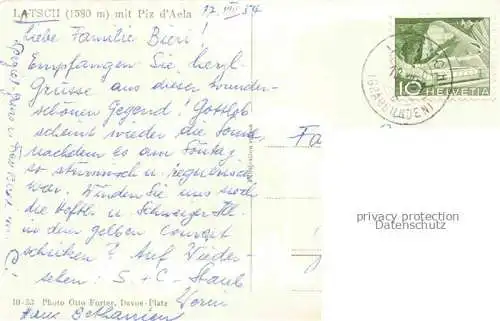 LATSCH (1580 m) mit Piz d'Aela
17. VIII 54
Liebe Familie Bieri!
Empfangen Sie herzl.
Grüsse aus dieser wunder-
schönen Gegend! Gottlob
scheint wieder die Sonne,
nachdem es am Sontag
so stürmisch u. regnerisch
war. Würden Sie uns noch
die Hoftl. u. Schweizer Ill.
in dem gelben Couvert
schicken? Auf Wieder-
sehen: S. + C. Staub
10-53 Photo Otto Furter, Davos-Platz
Haus Bethanien
Fa
10 HELVETIA
(GRAUBÜNDEN)
privacy protection
Datenschutz